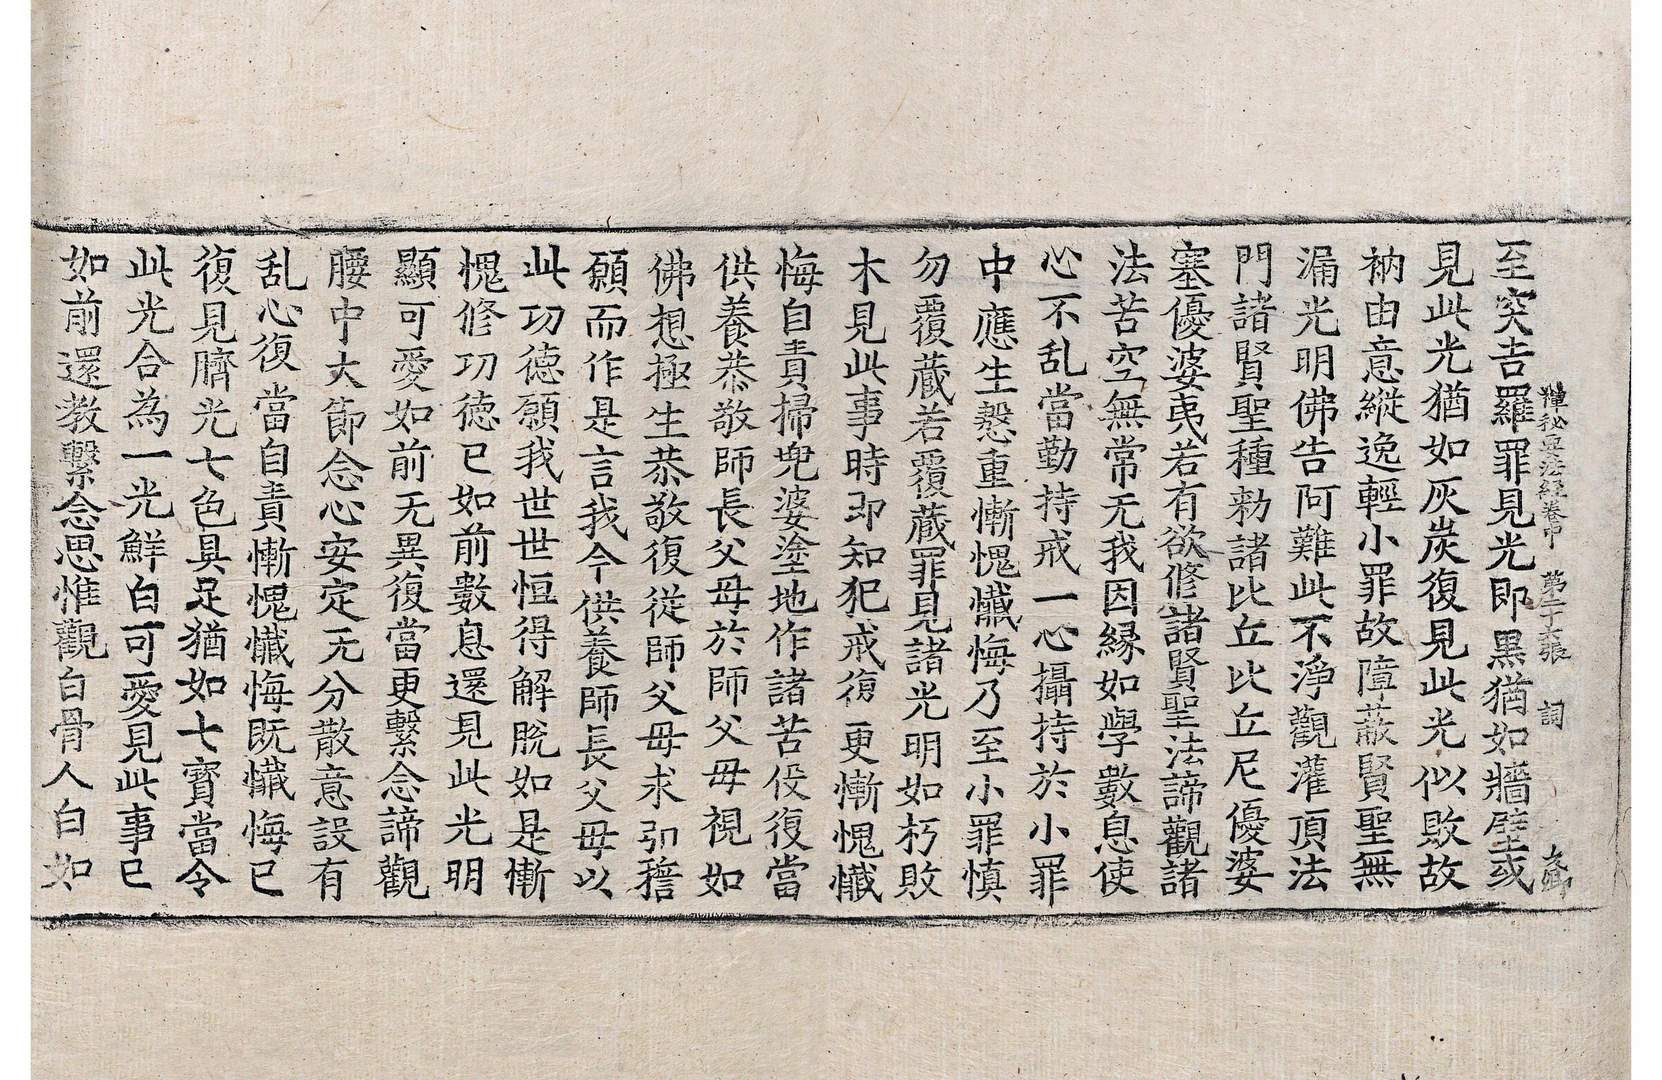 禪秘要法經卷中 第二十六張 詞
至突吉羅罪見光即黒猶如牆壁或
見此光猶如灰炭復見此光似敗故
衲由意縱逸輕小罪故障蔽賢聖無
漏光明佛告阿難此不淨觀灌頂法
門諸賢聖種勑諸比丘比丘尼優婆
塞優婆夷若有欲修諸賢聖法諦觀諸
法苦空無常无我因縁如學數息使
心不乱當勤持戒一心攝持於小罪
中應生慇重慚愧懺悔乃至小罪慎
勿覆蔵若覆蔵罪見諸光明如朽敗
木見此事時即知犯戒復更慚愧懺
悔自責掃兜婆塗地作諸苦役復當
供養恭敬師長父母於師父母視如
佛想極生恭敬復従師父母求弘誓
願而作是言我今供養師長父母以
此功徳願我世世恒得解脫如是慚
愧修功徳已如前數息還見此光明
顯可愛如前无異復當更繫念諦觀
腰中大節念心安定无分散意設有
乱心復當自責慚愧懺悔既懺悔已
復見臍光七色具足猶如七寳當令
此光合為一光鮮白可愛見此事已
如前還教繫念思惟觀白骨人白如